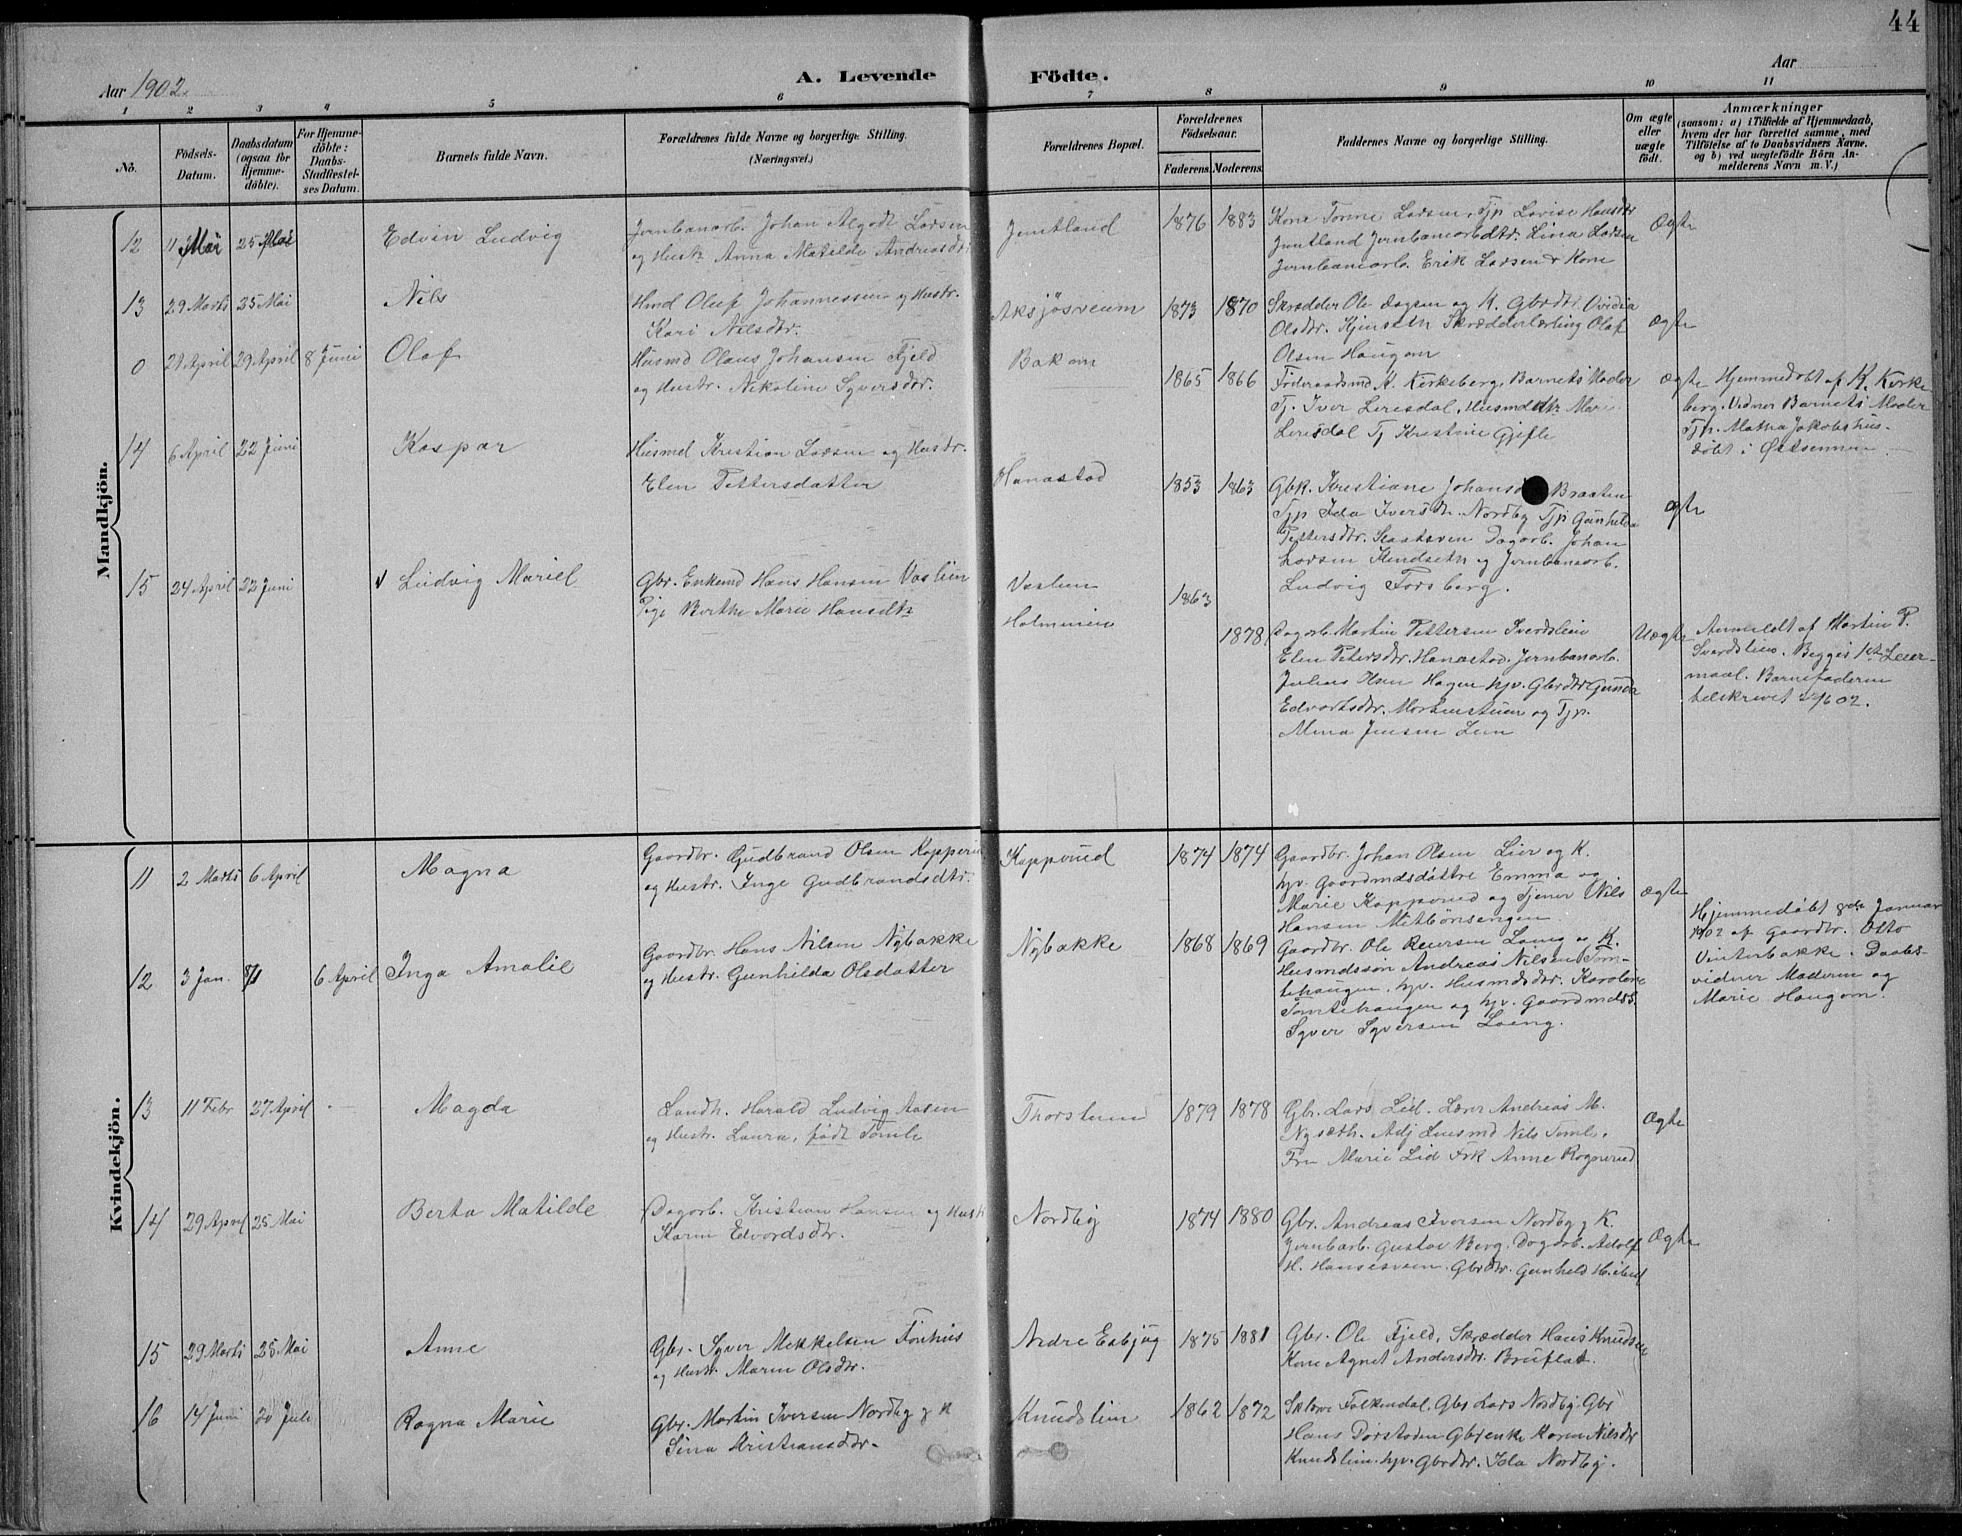 44
Aar 1902.
A. Levende Födte.
Aar
1 2 3 4 5 6 7 8 9 10 11
No.
Födsels-Datum.
Daabsdatum (ogsaa for Hjemme-döbte).
For Hjemme-döbte: Daabs-Stadfæstel-ses Datum.
Barnets fulde Navn.
Forældrenes fulde Navne og borgerlige Stilling.
(Næringsvei.)
Forældrenes Bopæl.
Forældrenes Födselsaar.
Faderens. Moderens.
Faddernes Navne og borgerlige Stilling.
Om ægte eller uægte födt.
Anmærkninger
(saasom: a) i Tilfælde af Hjemmedaab,
hvem der har forrettet samme, med
Tilföielse af to Daabsvidners Navne,
og b) ved uægtefödte Börn An-
melderens Navn m. V.)
Mandkjön.
12 11 Mai 25 Mai Edvin Ludvig
Jernbanarb. Johan Algodt Larsen
og Hustr. Anna Matilde Andreasdtr.
Jemtland 1876 1883
Kone Tonne Larsen, Tjp Lovise Hansdtr
Jemtland Jernbanearbdtr. Lina Larsen
Jernbanearb. Erik Larsen & Kone
Ægte
13 29 Marts 25 Mai Nils
Hmd Oluf Johannessen og Hustr.
Kari Nilsdtr.
Aksjøsveen 1873 1870
Skrædder Ole og K. Gbrdtr. Ovidia
Olsdtr. Skrædderlærling Olaf
Olsen Haugom
Ægte
0 21 April 29 April 8 Juni Olaf
Husmd Olaus Johansen Fjeld
og Hustr. Nikoline Syversdtr.
Bakom 1865 1866
Föderaadsmd K. Kirkeberg, Barnets Moder
Tj. Iver Leresdal, Husmdktr Marie
Leresdal Tj Kristine Gjefle
Ægte
Hjemmedøbt af K. Kirke
berg. Vidner Barnets Moder
Tjp. Mathea Jakobshus-
døbt i Østsennen
14 6 April 22 Juni Kaspar
Husmd Kristian Larsen og Hustr.
Elen Pettersdatter
Hanastad 1853 1863
Gbk. Kristiane Johansd Braaten
Tjp Ida Iversdtr. Nordby Tjp Gunhilda
Pettersdtr. Dagarb. Johan
Larsen og Jernbanearb.
Ludvig Forsberg.
Ægte
15 24 April 22 Juni Ludvig Mariel
Gbr. Enkemd Hans Hansen Vaslien
Pige Berthe Marie Hansdtr
Vaslien
Holmmien
1863
1878
Dagarb. Martin Pettersen Sverdslien
Elen Petersdtr. Hanastad. Jernbanarb.
Julius Olsen Hagen hjv. Gbrdtr Gunda
Edvartsdtr. Mortenstuen og Tjp.
Mina Jensen Lien
Uægte
Anmeldt af Martin P.
Sverdslien. Begges 1ste Leier-
maal. Barnefaderen
tilskrevet 29/6 02.
Kvindekjön.
11 2 Marts 6 April Magna
Gaardbr. Gudbrand Olsen Kopperud
og Hustr. Inge Gudbrandsdtr.
Koppervud 1874 1874
Gaardbr. Johan Olsen Lier og K.
hjv. Gaardmdsdöttre Emma og
Marie Koppervud og Tjener Nils
Hansen Metbönsengen.
Ægte
12 3 Jan. 8/1 6 April Inga Amalie
Gaardbr. Hans Nilsen Nybakke
og Hustr. Gunhilda Olsdatter
Nybakke 1868 1869
Gaardbr. Ole Reiersen Loeng og K.
Husmdssön Andreas Nilsen Tom-
tehaugen, hjv. Husmdsdtr. Karolene
Tomtehaugen og hjv. Gaardmdss.
Syver Syversen Loeng.
Hjemmedøbt 8de Januar
1902 af Gaardbr. Otto
Vinterbakke. Daabs-
vidner Moderen og
Marie Haugom.
13 11 Febr 27 April Magda
Landh. Harald Ludvig Aasen
og Hustr. Laura, født Tomle
Thorsteen 1879 1878
Gbr. Lars Lid. Lærer Andreas M.
Nysæth. Adj Lensmd Nils Tomle.
Fru Marie Lid Frk Anne Rognerud
Ægte
14 29 April 25 Mai Berta Matilde
Dagarb. Kristian Hansen og Hustr
Karen Edvordsdtr.
Nordby 1874 1880
Gbr. Andreas Iversen Nordby g K.
Jernbarb. Gustav Berg. Dagarb. Adolf
H. Hansesveen. Gbrdtr. Gunhild
Ægte
15 29 Marts 25 Mai Anne
Gbr. Syver Mikkelsen Fönhus
og Hustr. Maren Olsdtr.
Nedre Esbjug 1875 1881
Gbr. Ole Fjeld, Skrædder Hans Knudsen
Kone Agnet Andersdtr. Bruflat.
16 14 Juni 20 Juli Ragna Marie
Gbr. Martin Iversen Nordby g K
Sina Kristiansdtr.
Knudslien 1862 1872
Folkendal. Gbr Lars Nordby. Gbr
Hans Dorstaden Gbrenke Karen Nilsdtr
Knudslien. hjv. Gbrdtr. Ida Nordby.